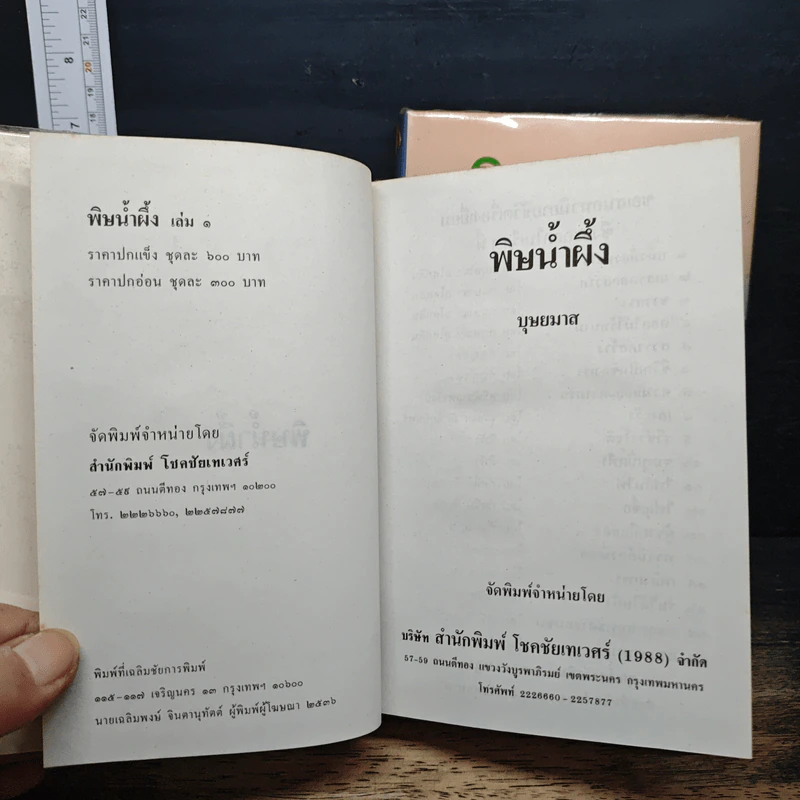 พิษน้ำผึ้ง เล่ม ๑
ราคาปกแข็ง ชุดละ ๖๐๐ บาท
ราคาปกอ่อน ชุดละ ๓๐๐ บาท
จัดพิมพ์จำหน่ายโดย
สำนักพิมพ์ โชคชัยเทเวศร์
๕๗-๕๙ ถนนตีทอง กรุงเทพฯ ๑๐๒๐๐
โทร. ๒๒๒๖๖๖๐, ๒๒๕๗๘๗๗
พิมพ์ที่เฉลิมชัยการพิมพ์
๑๑๕-๑๑๗ เจริญนคร ๑๓ กรุงเทพฯ ๑๐๖๐๐
นายเฉลิมพงษ์ จินดานุทัตต์ ผู้พิมพ์ผู้โฆษณา ๒๕๓๖
พิษน้ำผึ้ง
บุษยมาส
จัดพิมพ์จำหน่ายโดย
บริษัท สำนักพิมพ์ โชคชัยเทเวศร์ (1988) จำกัด
57-59 ถนนตีทอง แขวงวังบูรพาภิรมย์ เขตพระนคร กรุงเทพมหานคร
โทรศัพท์ 2226660-2257877
8
7
22
21
20
19
18